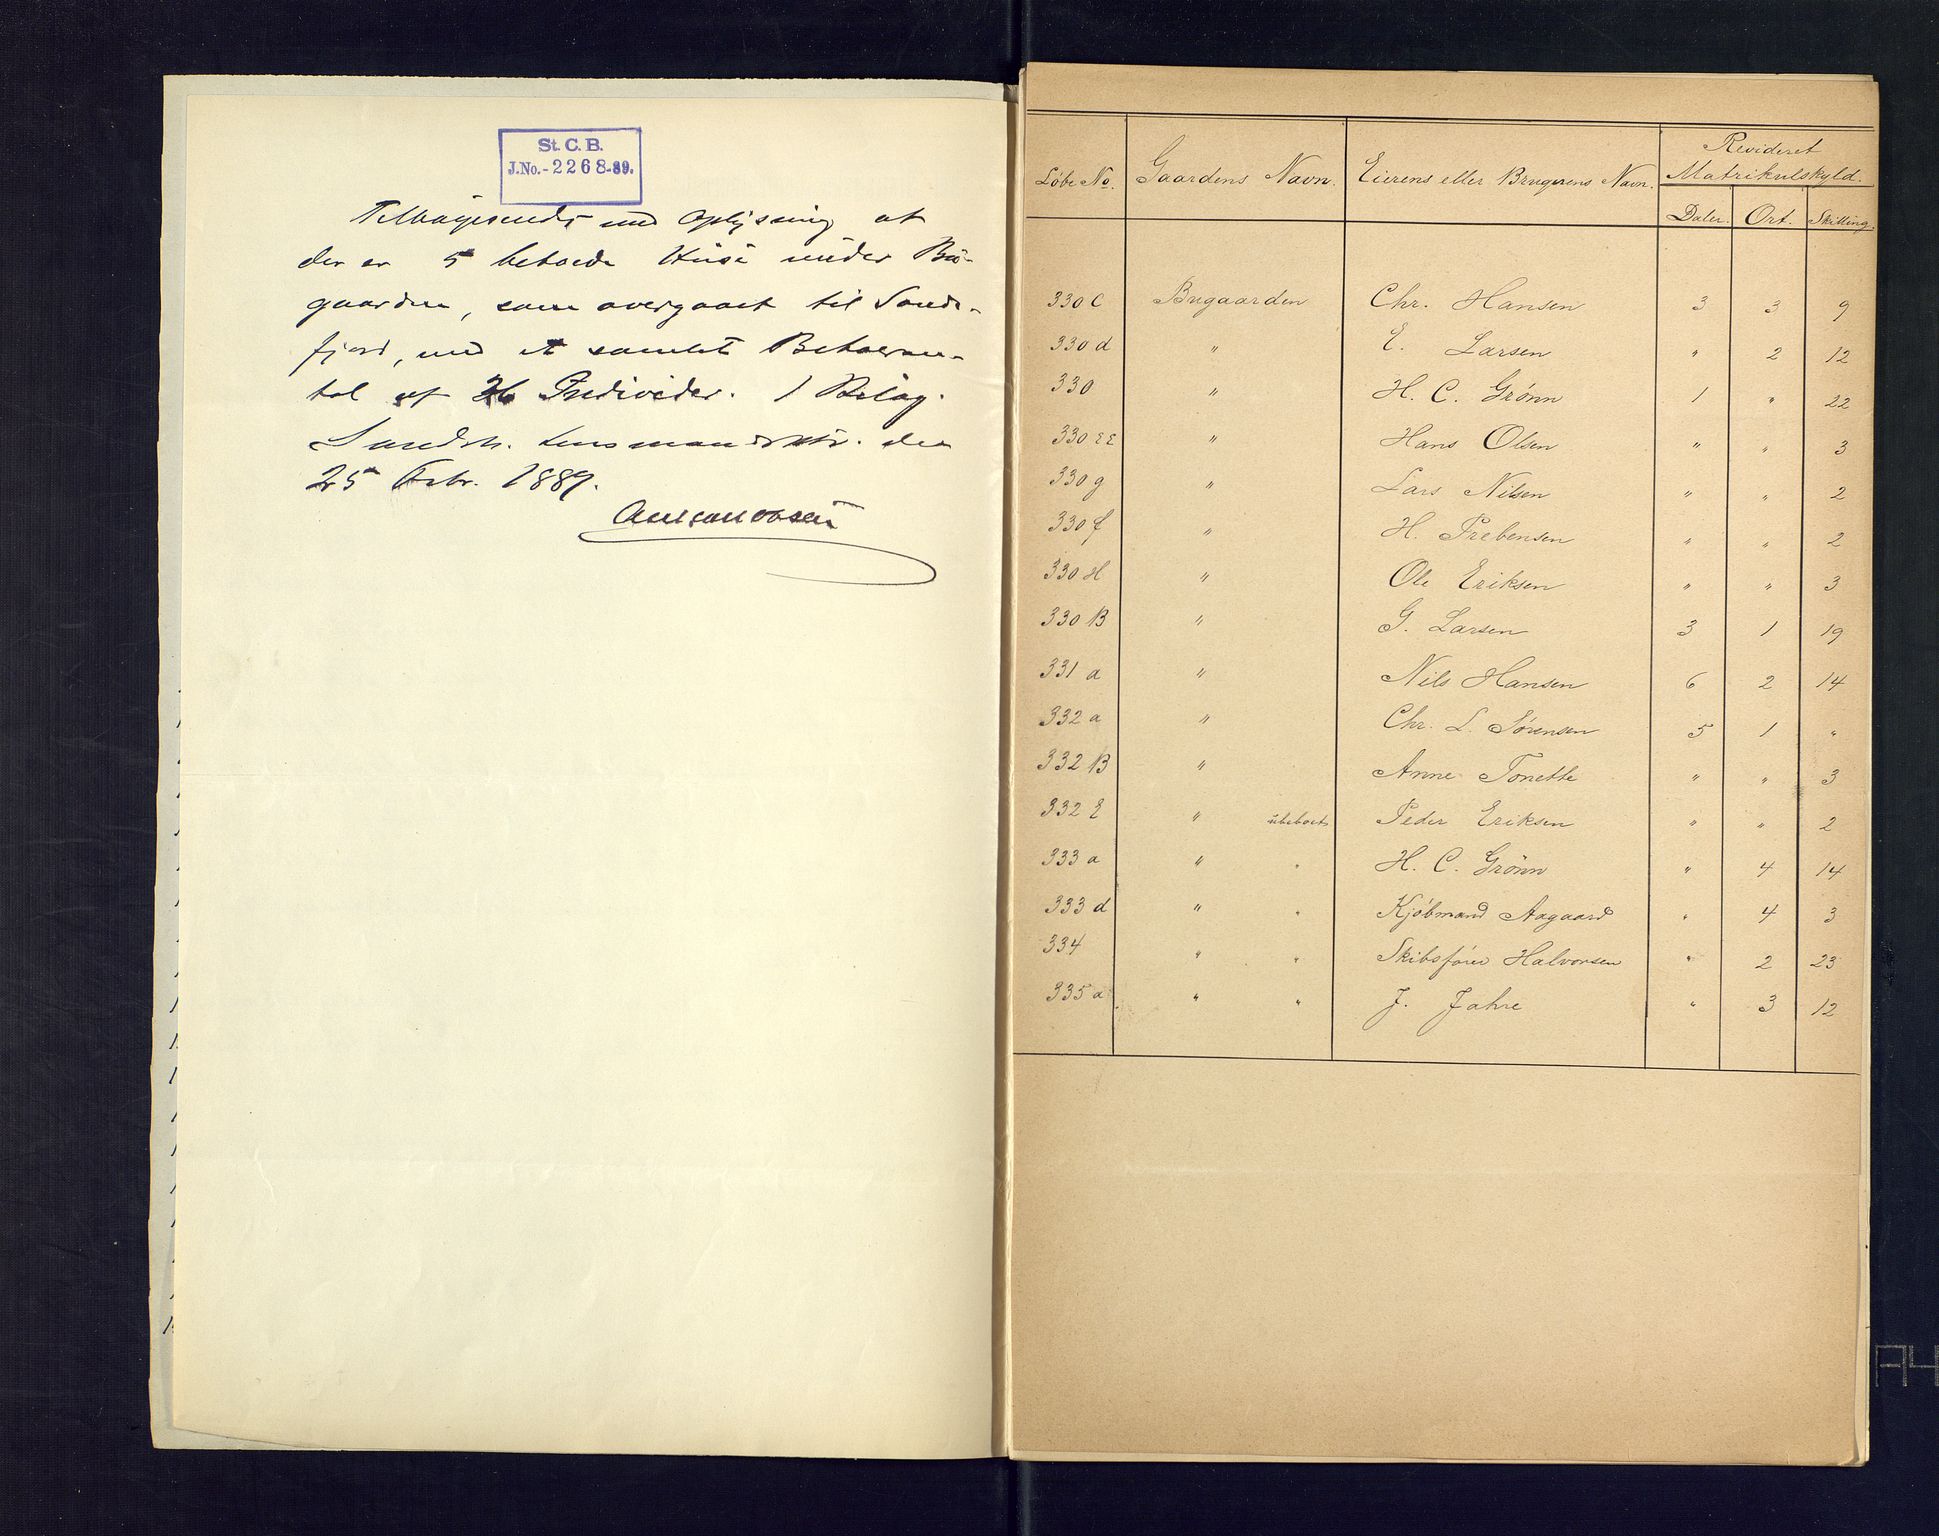 St. C. B.
J.No.-2268-89.
Tilbagesendes med Oplysning at
der er 5 beboede Huse under Bu-
gaarden, som overgaaet til Sande-
fjord, med et samlet Beboeran-
tal af 36 Individer. 1 Bilag.
Lensmandsktr. den
25 Febr. 1889.
Løbe No. Gaardens Navn. Eierens eller Brugerens Navn. Revideret Matrikulskyld.
Daler. Ort. Skilling.
330 C Bugaarden Chr. Hansen 3 3 9
330 d " E. Larsen " 2 12
330 " H. C. Grønn 1 " 22
330 EE " Hans Olsen " " 3
330 g " Lars Nilsen " " 2
330 f " H. Prebensen " " 2
330 H " Ole Eriksen " " 3
330 B " G. Larsen 3 1 19
331 a " Nils Hansen 6 2 14
332 a " Chr. L. Sørensen 5 1 "
332 B " Anne Tonette " " 3
332 E " ubeboet Peder Eriksen " " 2
333 a " " H. C. Grønn " 4 14
333 d " " Kjøbmand Aagaard " 4 3
334 " " Skibsfører Halvorsen " 2 23
335 a " " J. Jahre " 3 12